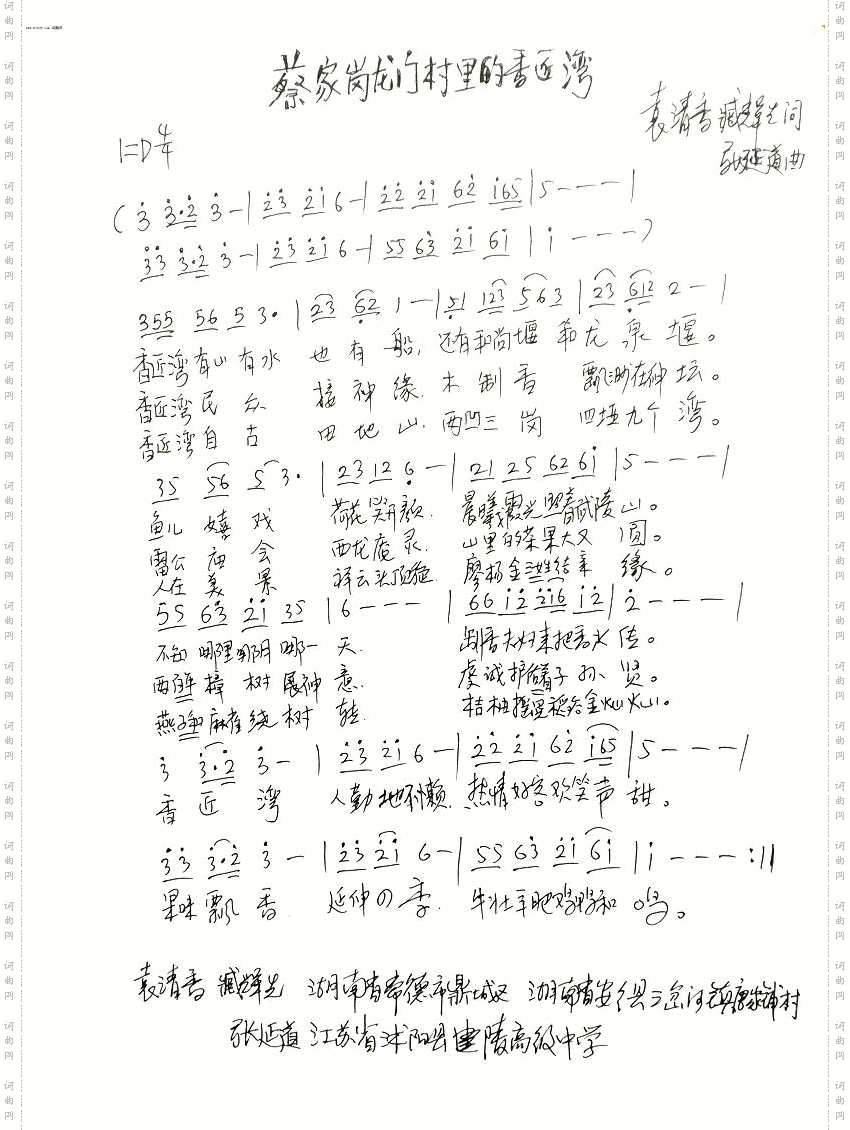 蔡家岗龙门村里的香匠湾
袁清香 臧辉先词
1=D 4/4
张延道曲
(3̇ 3̇·2̇ 3̇ - | 2̇3̇ 2̇1̇ 6 - | 2̇2̇ 2̇1̇ 62̇ 1̇65 | 5 - - - |
3̇3̇ 3̇·2̇ 3̇ - | 2̇3̇ 2̇1̇ 6 - | 55 63̇ 2̇1̇ 61̇ | 1̇ - - - )
355 56 5 3· | 23 6̣2 1 - | 5̣1 123 5 63 | 23 6̣12 2 - |
香匠湾有山有水 也有船, 还有和尚堰 和龙泉堰。
香匠湾民众 接神缘. 木制香 飘渺在神坛。
香匠湾自古 田地山. 两凹三岗 四垭九个湾。
35 56 5 3· | 23 12 6̣ - | 21 25 62 61̇ | 5 - - - |
鱼儿嬉戏 荷花笑开颜. 晨曦霞光照着武陵山。
雷公庙会 西龙庵灵. 山里的茶果大又圆。
人在美景 祥云头顶旋. 廖杨金姓结亲缘。
55 63̇ 2̇1̇ 35 | 6 - - - | 66 1̇2̇ 2̇1̇6 1̇2̇ | 2̇ - - - - |
不知哪里哪月哪一天. 制香夫妇来把香火传。
西 樟树展神意. 虔诚护 着子孙贤。
燕子和麻雀绕树转. 桔柚 金灿灿。
3̇ 3̇·2̇ 3̇ - | 2̇3̇ 2̇1̇ 6 - | 2̇2̇ 2̇1̇ 62̇ 1̇65 | 5 - - - |
香匠湾 人勤地不懒. 热情好客欢笑声甜。
3̇3̇ 3̇·2̇ 3̇ - | 2̇3̇ 2̇1̇ 6 - | 55 63̇ 2̇1̇ 61̇ | 1̇ - - - :||
果味飘香. 延伸の季. 牛壮羊肥鸡鸭和鸣。
袁清香 臧辉先 湖南省常德市鼎城区 湖南省安 县 镇 村
张延道 江苏省沭阳县建陵高级中学
词曲网